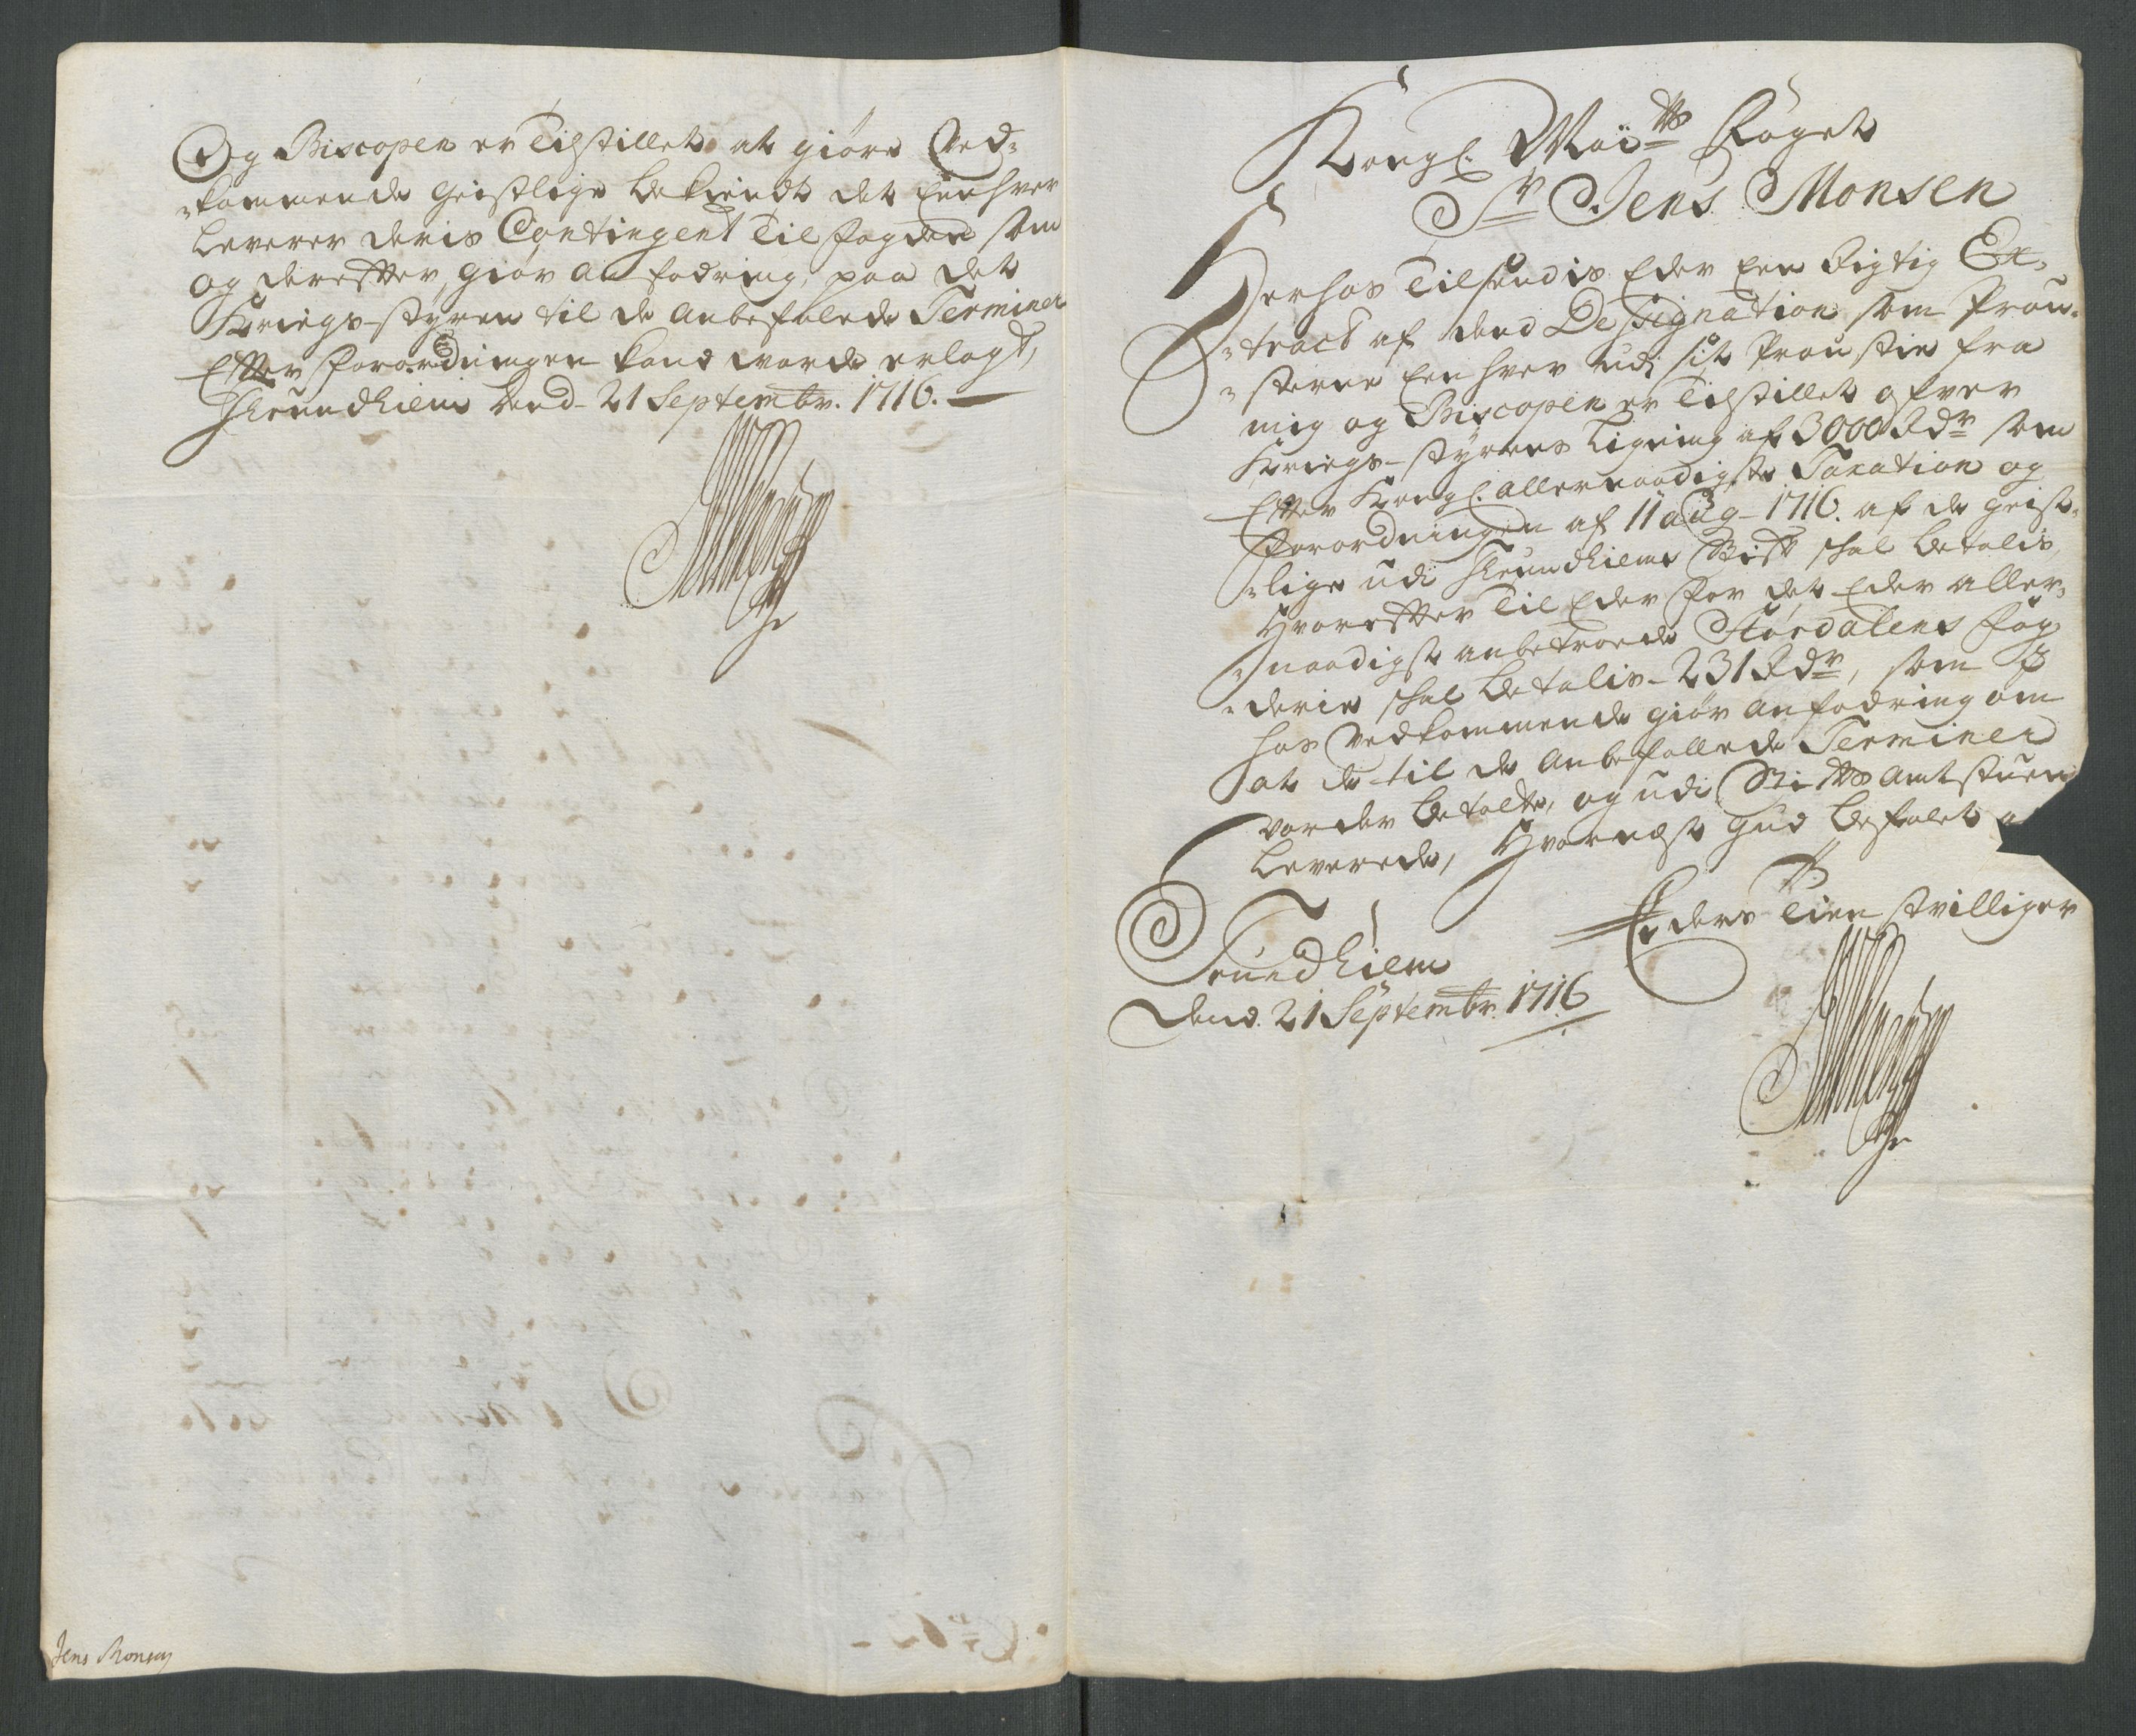 Og Biscopen er Tilstillet at giøre Ved-
-kommende Geistlige bekiendt det Eenhver
leverer deris Contingent Til fogden som
og derefter, giør Anfodring, paa det
Kriegs-styren til de Anbefalede Terminer
Efter Forordningen kand worde erlagt,
Thrundhiem dend 21 Septembr. 1716.
Jens Monsen
Kongl. Maÿtts Foget
Sr Jens Monsen
Herhos Tilsendis Eder Een Rigtig Ex-
-tract af dend Designation som Prou-
-sterne Een hver udj sit Proustie fra
mig og Biscopen er Tilstillet ofver
Kriegs-styrens Ligning af 3000 Rdr som
Efter Kongl. allernaadigste Taxation og
Forordningen af 11 Aug- 1716. af de geist-
-lige udi Thrundhiems Stift skal betalis,
Hvorefter Til Eder for det Eder aller-
-naadigst anbetroede Størdalens fog-
-derie skal betalis- 231 Rdr, som I
hos Vedkommende giør anfodring om
at de til de anbefallede Terminer
vorder betalte, og udi Stiftsamtstuen
leverede, Hvornæst Gud befalet
Eders Tienstvilliger
Trundhiem
Dend. 21 Septembr. 1716